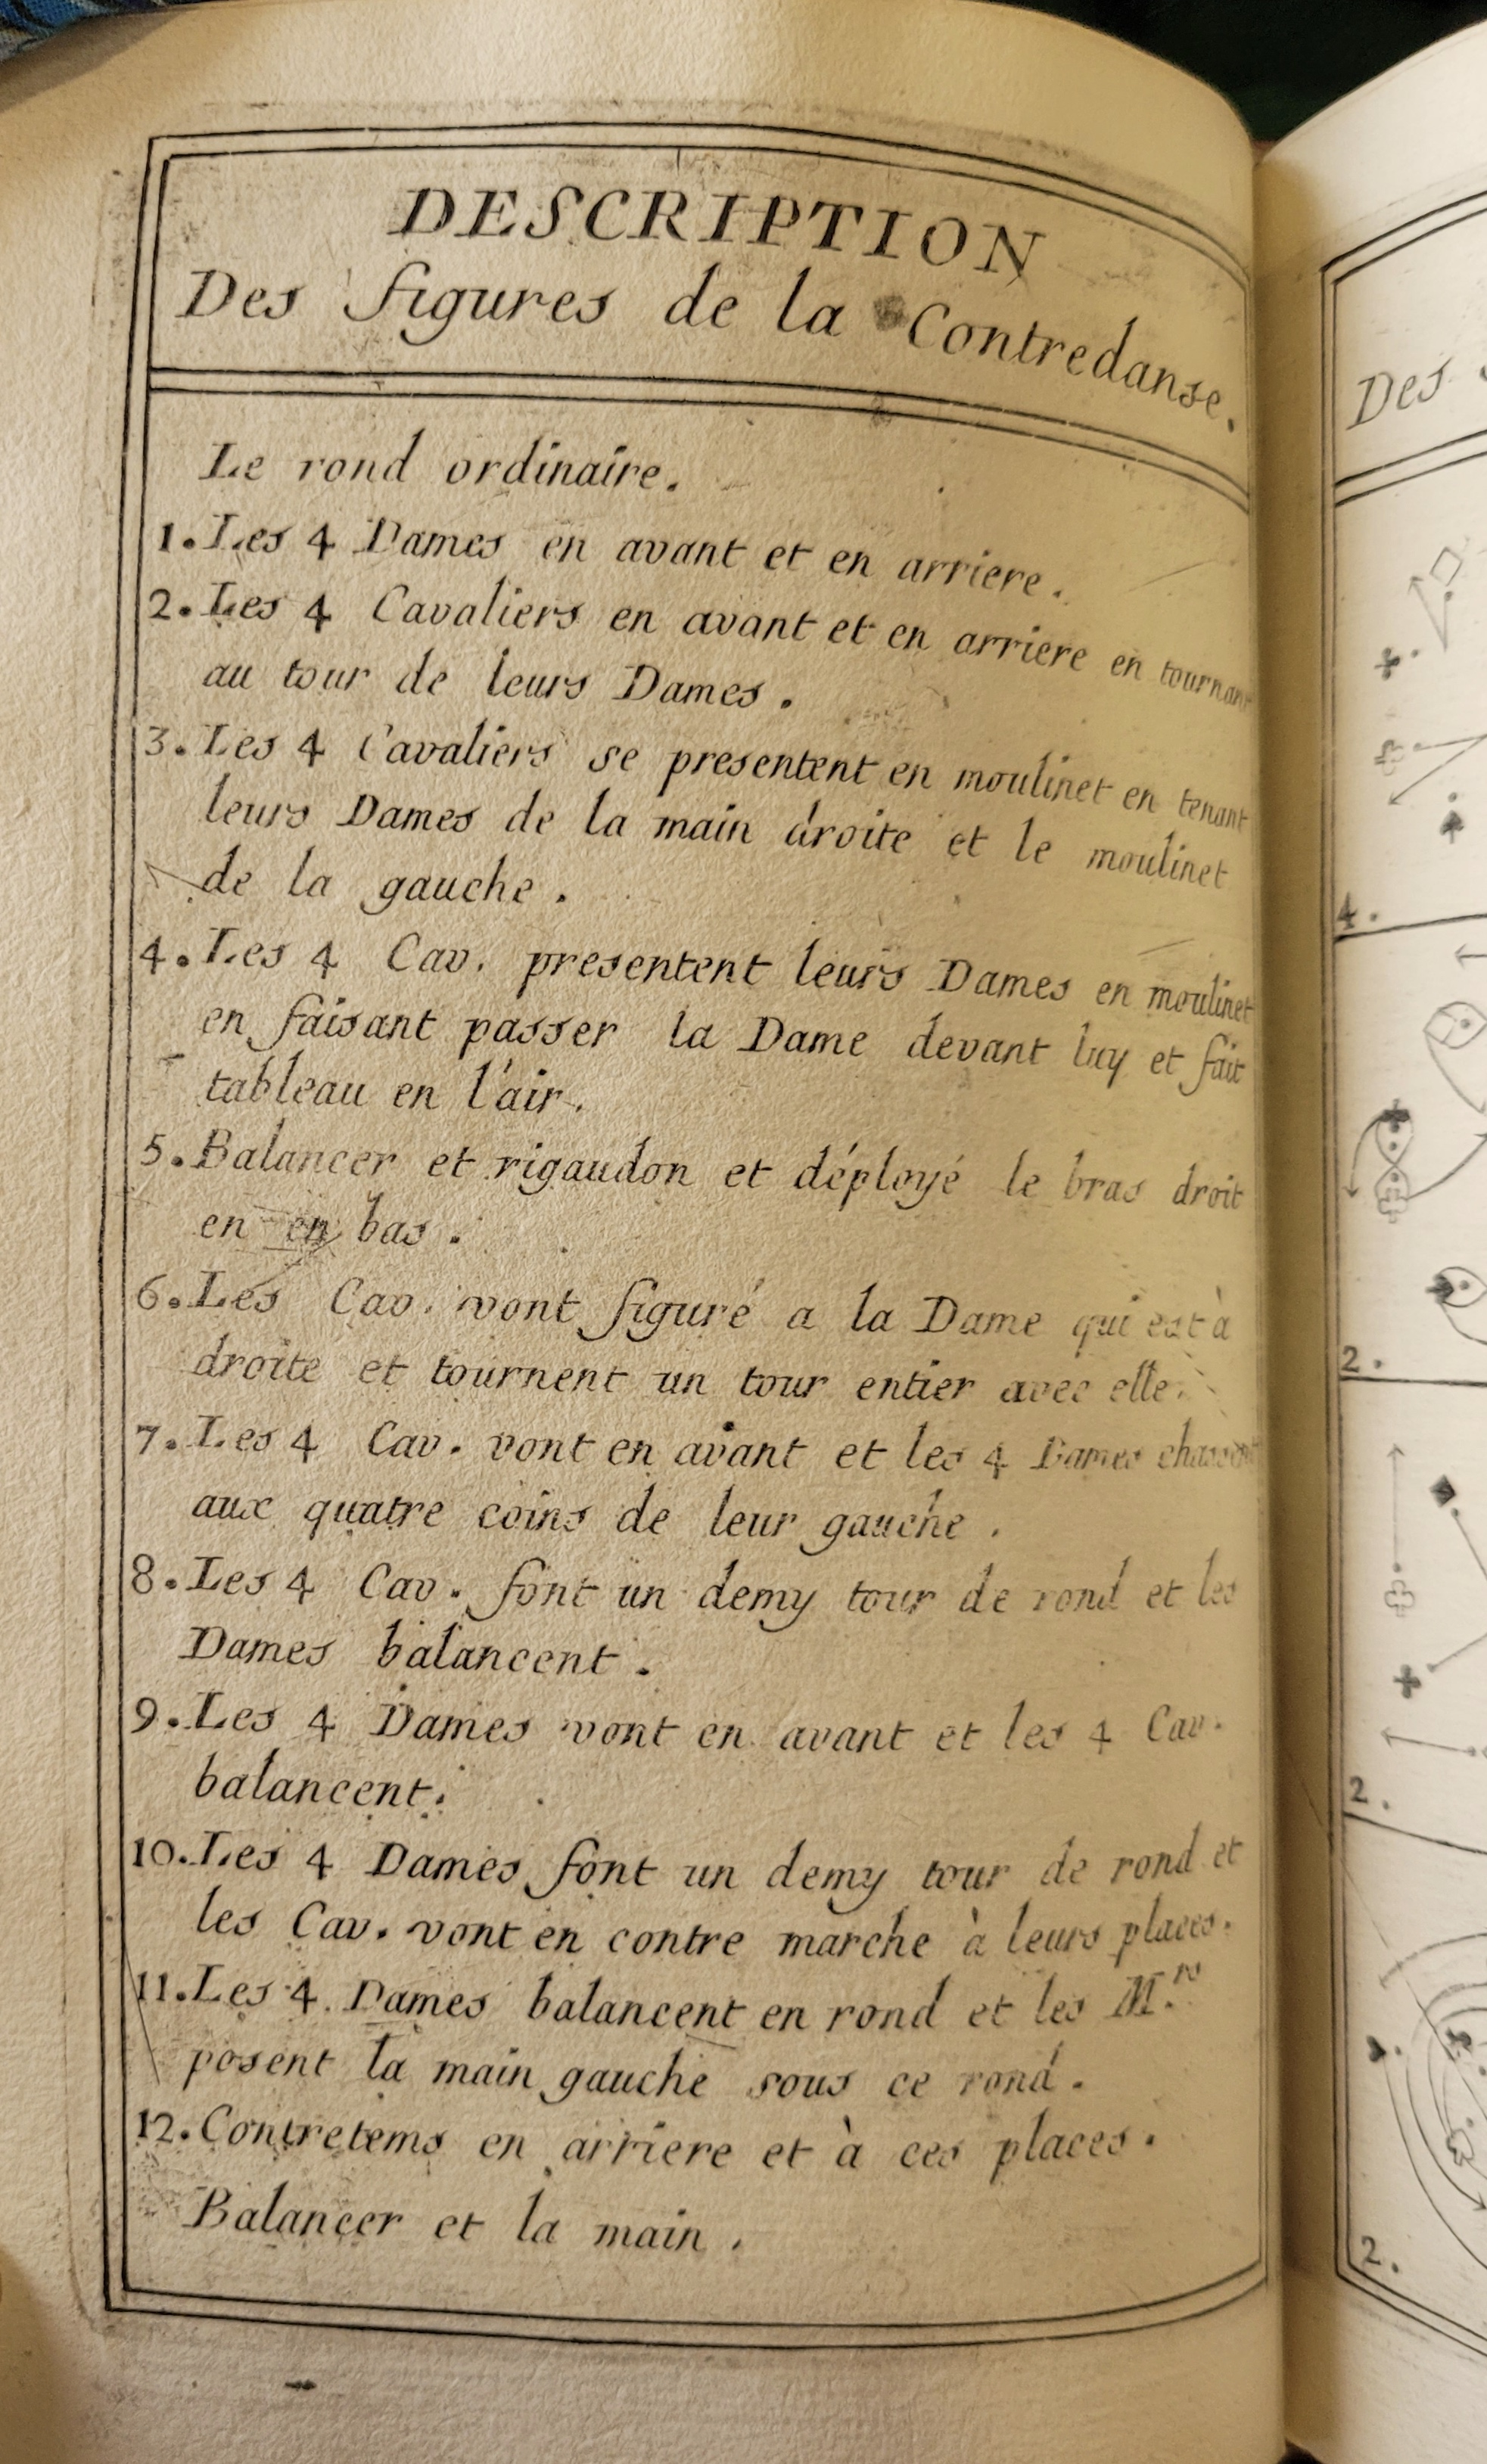 DESCRIPTION
Des figures de la Contredanse.
Le rond ordinaire.
1. Les 4 Dames en avant et en arriere.
2. Les 4 Cavaliers en avant et en arriere en tournant
au tour de leurs Dames.
3. Les 4 Cavaliers se presentent en moulinet en tenant
leurs Dames de la main droite et le moulinet
de la gauche.
4. Les 4 Cav. presentent leurs Dames en moulinet
en faisant passer la Dame devant luy et fait
tableau en l'air.
5. Balancer et rigaudon et déployé le bras droit
en en bas.
6. Les Cav. vont figuré a la Dame qui est à
droite et tournent un tour entier avec elle.
7. Les 4 Cav. vont en avant et les 4 Dames
aux quatre coins de leur gauche.
8. Les 4 Cav. font un demy tour de rond et les
Dames balancent.
9. Les 4 Dames vont en avant et les 4 Cav.
balancent.
10. Les 4 Dames font un demy tour de rond et
les Cav. vont en contre marche à leurs places.
11. Les 4 Dames balancent en rond et les M.rs
posent la main gauche sous ce rond.
12. Contretems en arriere et à ces places.
Balancer et la main.
Des
4.
2.
2.
2.